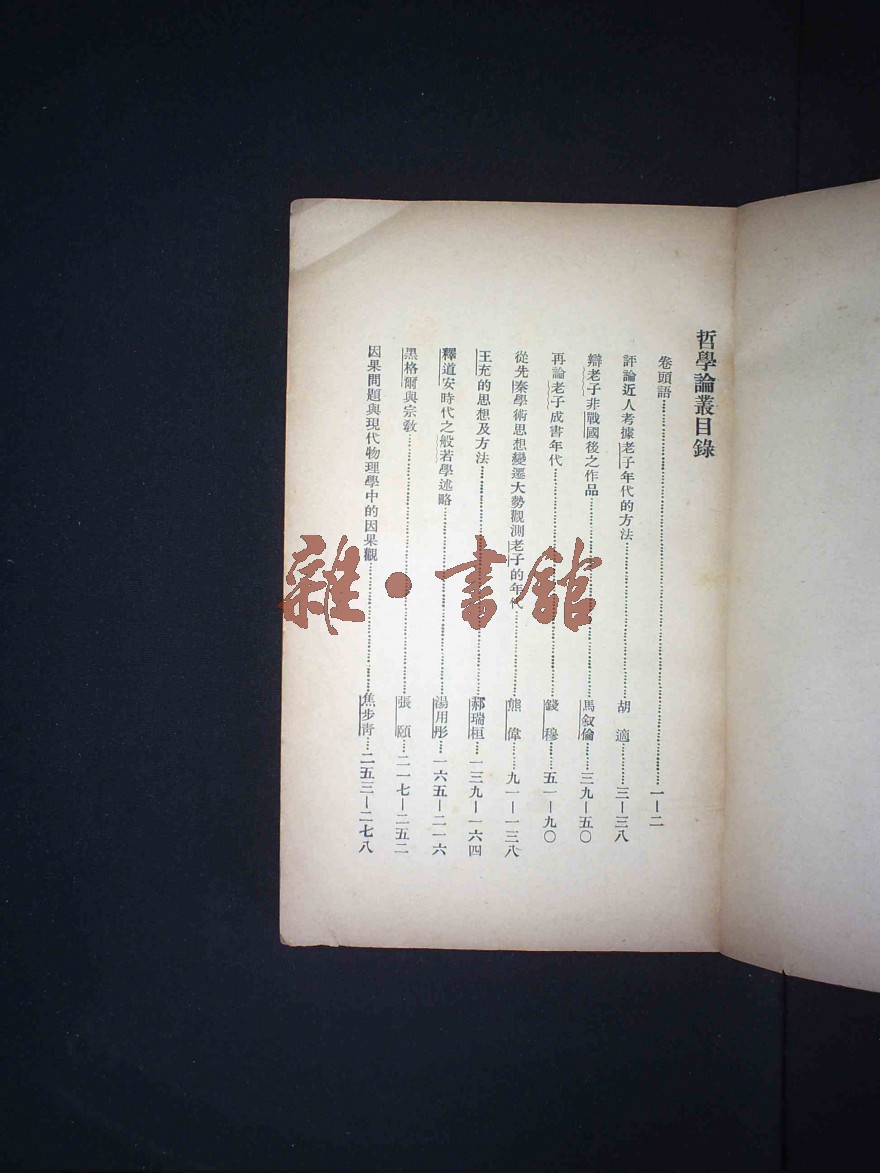 哲學論叢目錄
卷頭語…………一—二
評論近人考據老子年代的方法…………胡適…………三—三八
辯老子非戰國後之作品…………馬叙倫…………三九—五〇
再論老子成書年代…………錢穆…………五一—九〇
從先秦學術思想變遷大勢觀測老子的年代…………熊偉…………九一—一三八
王充的思想及方法…………郝瑞桓…………一三九—一六四
釋道安時代之般若學述略…………湯用彤…………一六五—二一六
黑格爾與宗教…………張頤…………二一七—二五二
因果問題與現代物理學中的因果觀…………焦步青…………二五三—二七八
雜·書館